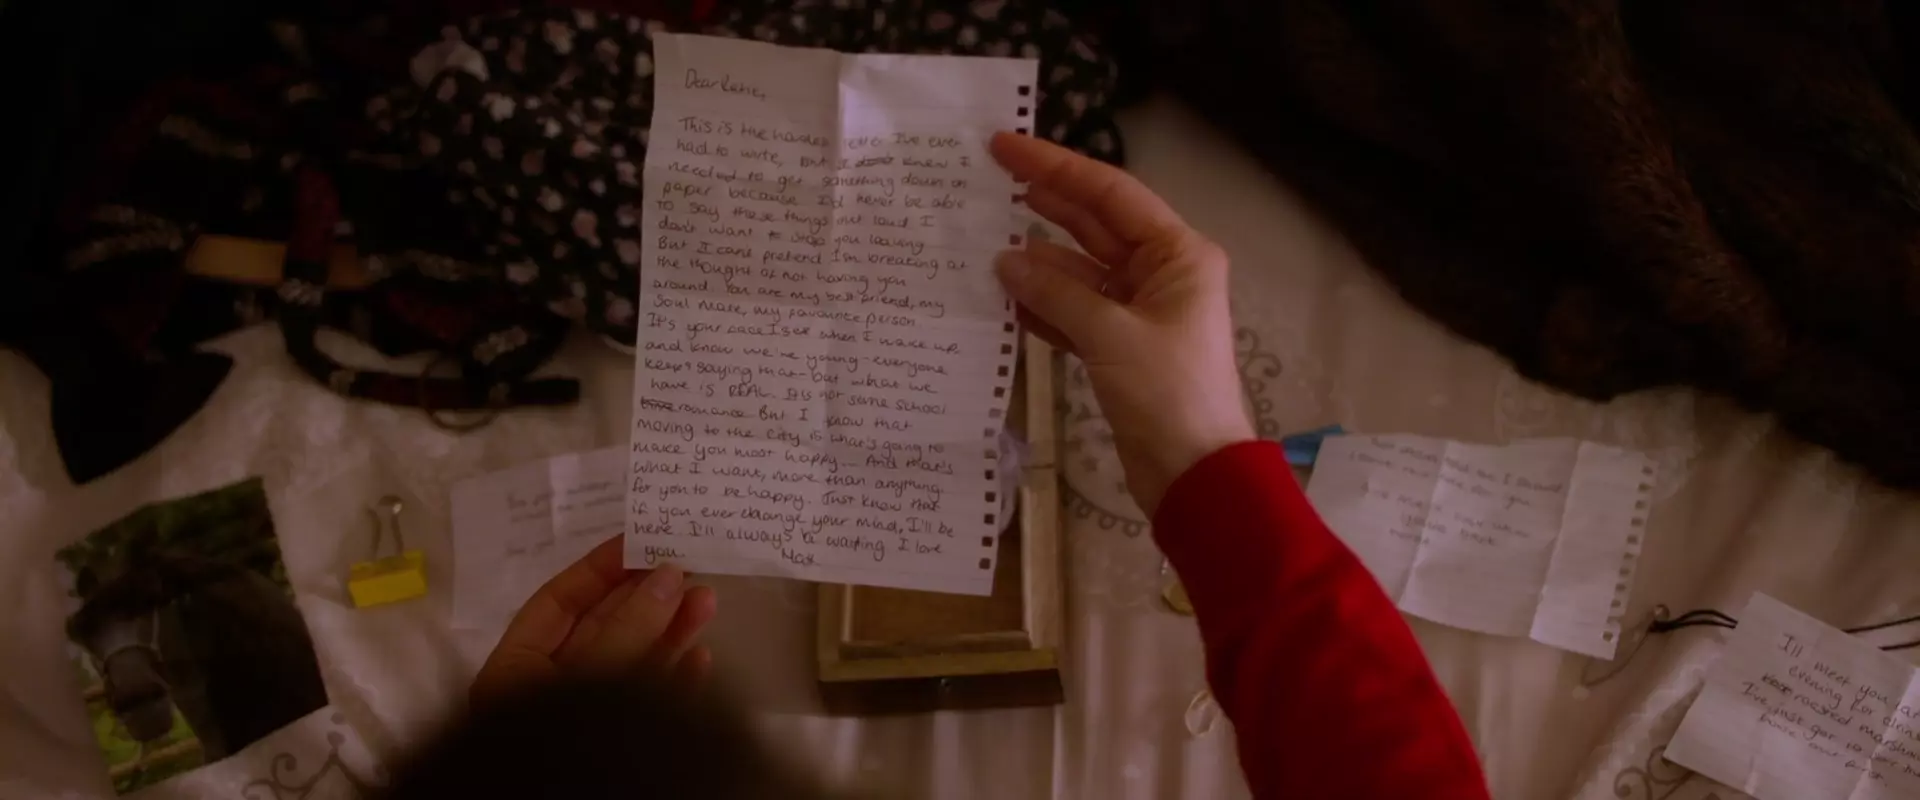 Dear Katie,
This is the hardest letter I've ever
had to write, but I knew I
needed to get something down on
paper because I'd never be able
to say these things out loud I
don't want to stop you leaving
But I can't pretend I'm breaking at
the thought of not having you
around. You are my best friend, my
soul mate, my favourite person.
It's your face I see when I wake up.
and know we're young-everyone
keeps saying that-but what we
have is REAL. It is not some school
romance But I know that
moving to the city is what's going to
make you most happy... And that's
what I want, more than anything.
for you to be happy. Just know that
if you ever change your mind, I'll be
here. I'll always be waiting I love
you.
I'll meet you
evening for
roasted
I've just got to